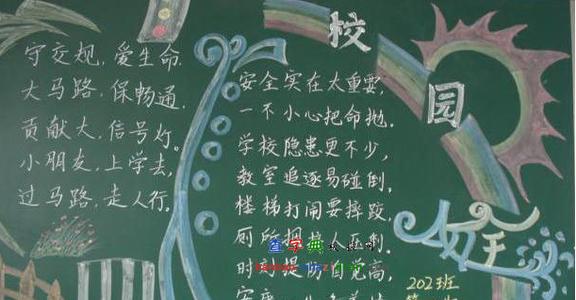 守交规，爱生命.
大马路，保畅通，
贡献大，信号灯。
小朋友，上学去，
过马路，走人行。
校园
安全
安全实在太重要，
一不小心把命抛.
学校隐患更不少，
教室追逐易碰倒.
楼梯打闹要摔跤，
厕所拥挤人
时刻提 自觉高，
查字典
202班